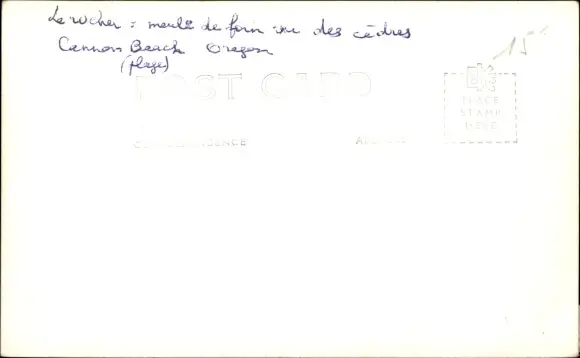 Le rocher = meule de foin vu des cèdres
Cannon Beach Oregon
(plage)
15
POST CARD
PLACE
STAMP
HERE
CORRESPONDENCE
ADDRESS